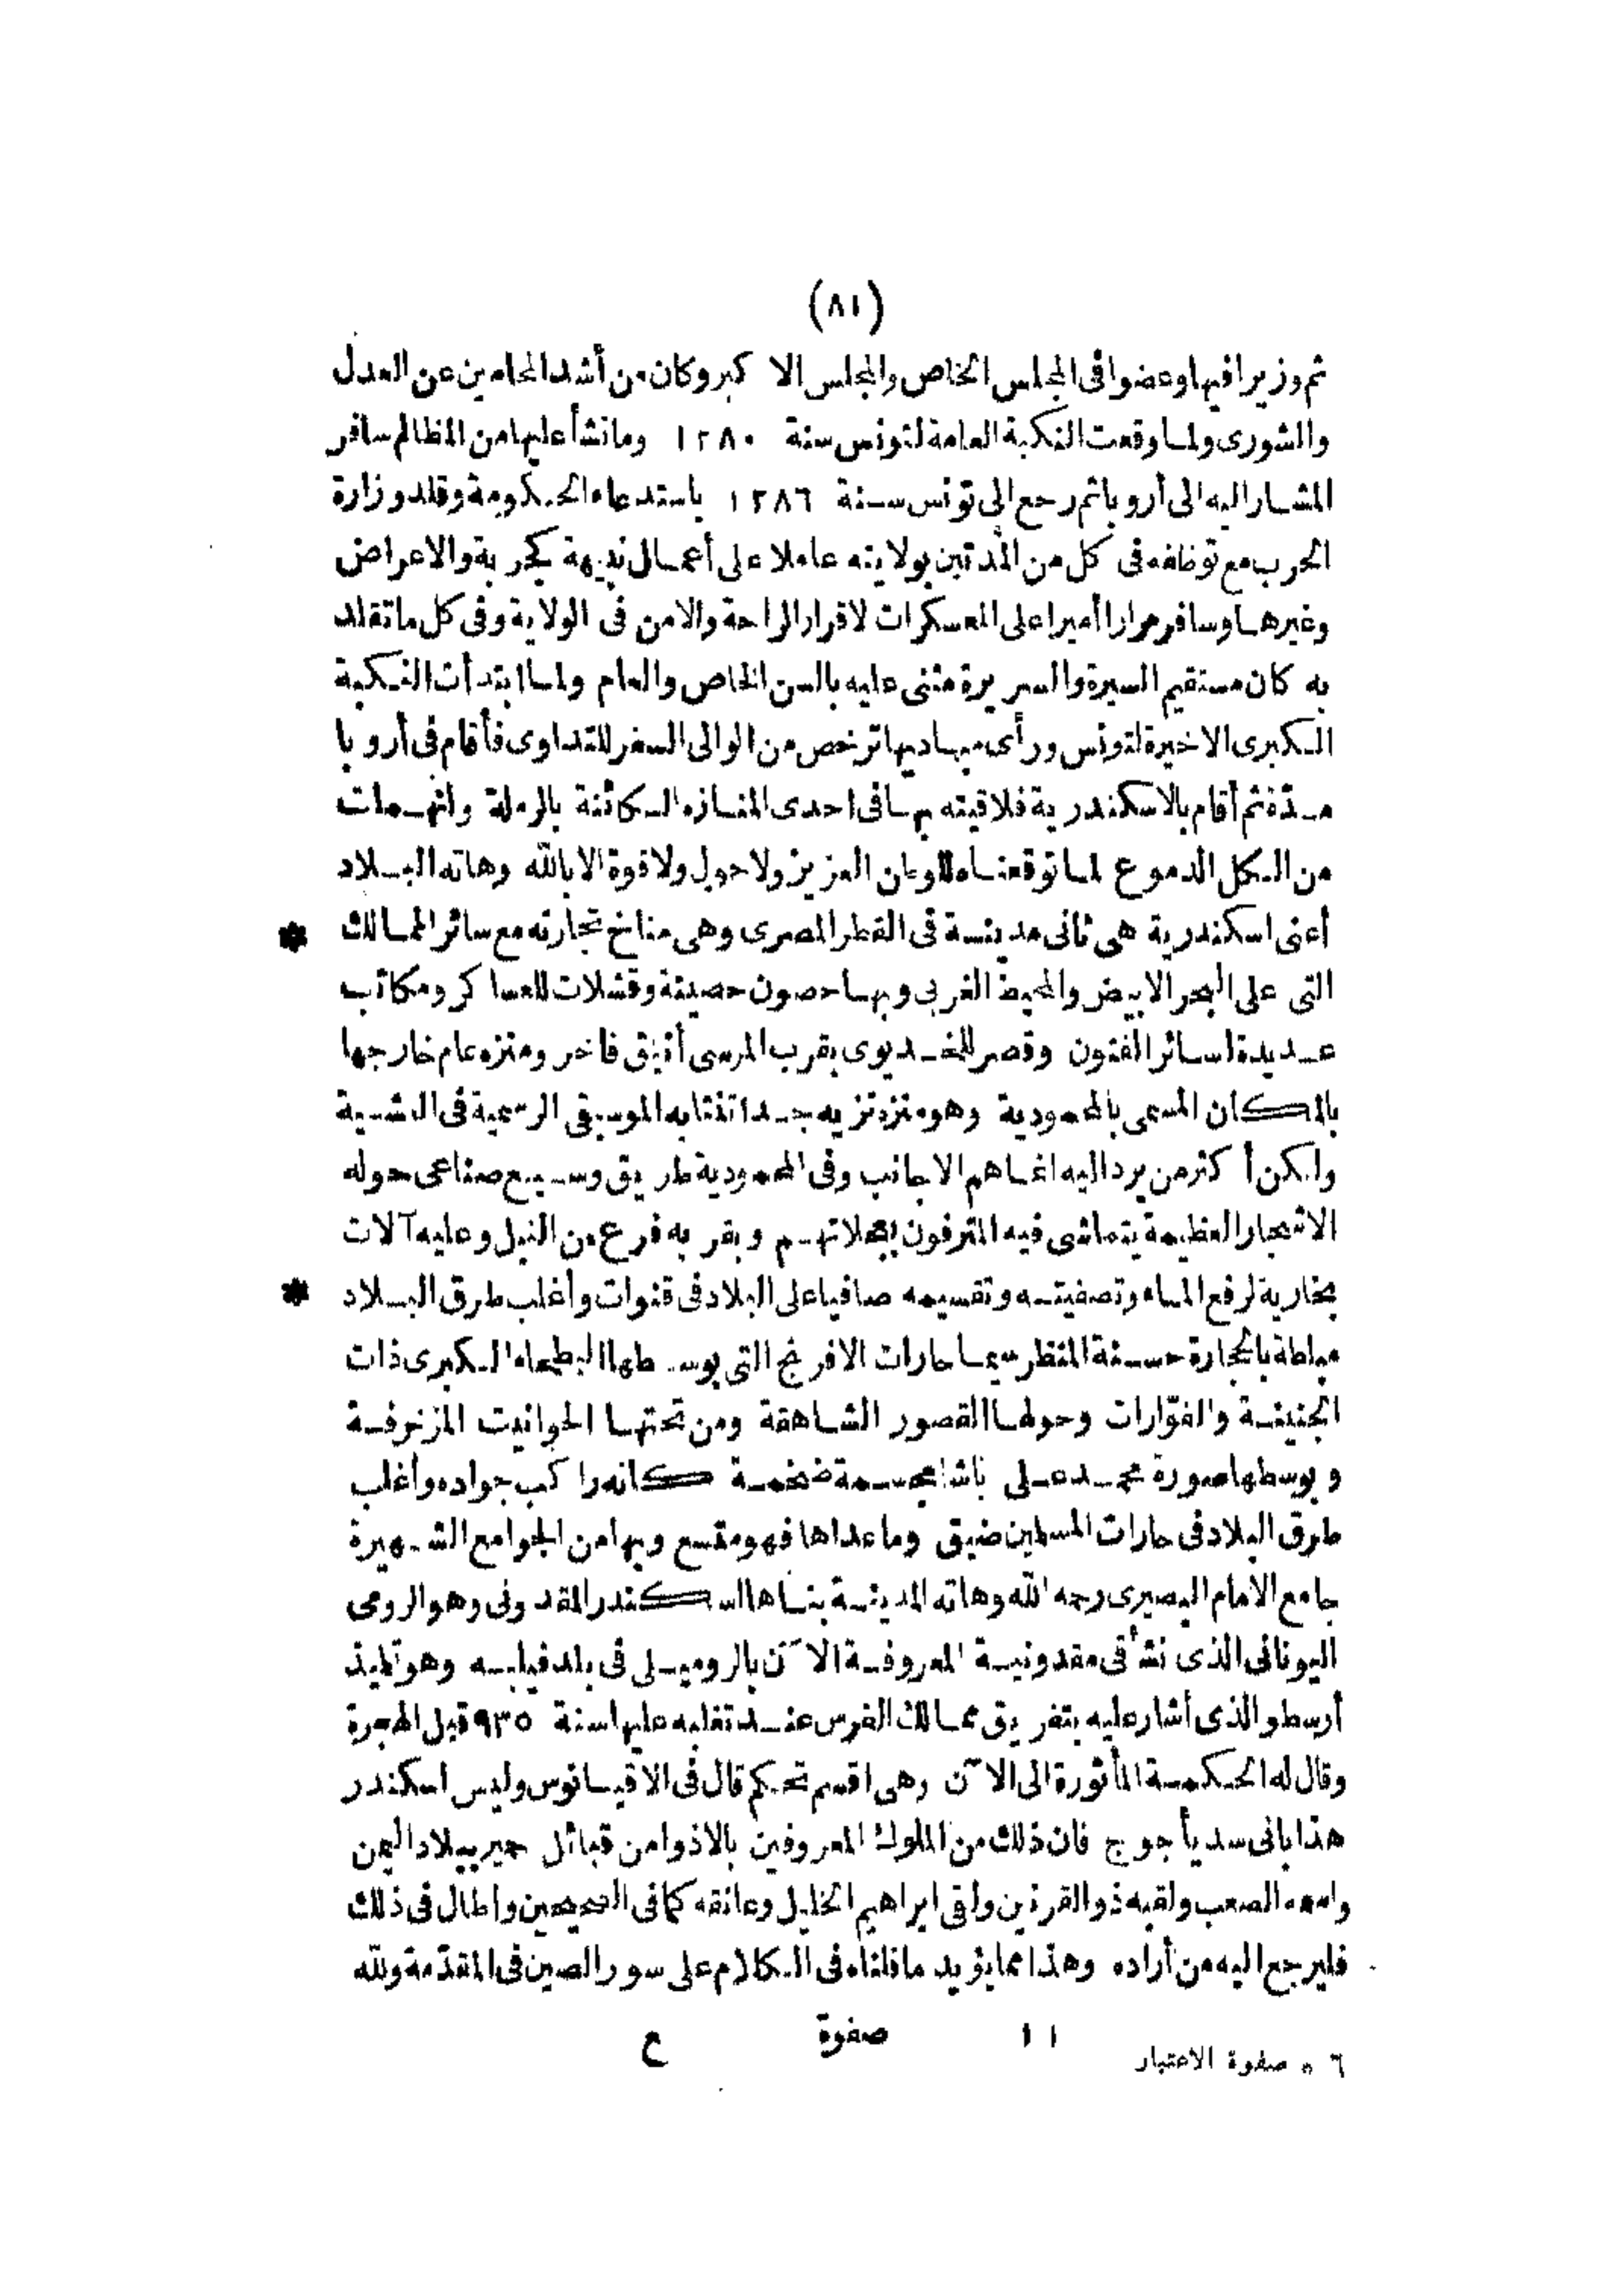 (٨١)
ثم وزيرا فيها وعضوا فى المجلس الخاص والمجلس الا كبر وكان من أشد المحامين عن العدل
والشورى ولما وقعت النكبة العامة لتونس سنة ١٢٨٠ وما نشأ عليها من المظالم سافر
المشار اليه الى أروبا ثم رجع الى تونس سنة ١٢٨٦ باستدعاء الحكومة وقلد وزارة
الحرب مع توظفه فى كل من المدتين بولايته عاملا على أعمال نبيهة كجربة والاعراض
وغيرها وسافر مرارا أميرا على المعسكرات لاقرار الراحة والامن فى الولاية وفى كل ما تقلد
به كان مستقيم السيرة والسريرة مثنى عليه بالسن الخاص والعام ولما ابتدأت النكبة
الكبرى الاخيرة لتونس ورأى مباديها ترخص من الوالى السفر للتداوى فأقام فى أروبا
مدّة ثم أقام بالاسكندرية فلاقيته بها فى احدى المنازه الكائنة بالرملة وانهملت
من الكل الدموع لما توقعناه للوطن العزيز ولا حول ولا قوة الا بالله وهاته البلاد
أعنى اسكندرية هى ثانى مدينة فى القطر المصرى وهى مناخ تجارته مع سائر الممالك *
التى على البحر الابيض والمحيط الغربى وبها حصون حصينة وقشلات للعسا كر ومكاتب
عديدة لسائر الفنون وقصر للخديوى بقرب المرسى أنيق فاخر ومنزه عام خارجها
بالمكان المسمى بالمحمودية وهو منزه نزيه جدا تنتابه الموسيقى الرسمية فى العشية
ولكن أ كثر من يرد اليه انما هم الاجانب وفى المحمودية طريق وسيع صناعى حوله
الاشجار العظيمة يتماشى فيه المترفون بعجلاتهم وبقربه فرع من النيل وعليه آلات
بخارية لرفع الماء وتصفيته وتقسيمه صافيا على البلاد فى قنوات وأغلب طرق البلاد *
مبلطة بالحجارة حسنة المنظر سيما حارات الافرنج التى بوسطها البطحاء الكبرى ذات
الجنينة والفوّارات وحولها القصور الشاهقة ومن تحتها الحوانيت المزخرفة
وبوسطها صورة محمد على باشا مجسمة ضخمة كانه را كب جواده وأغلب
طرق البلاد فى حارات المسلمين ضيق وما عداها فهو متسع وبها من الجوامع الشهيرة
جامع الامام البصيرى رحمه الله وهاته المدينة بناها اسكندر المقدونى وهو الرومى
اليونانى الذى نشأ فى مقدونية المعروفة الآن بالروميلى فى بلد فيلبه وهو تلميذ
أرسطو الذى أشار عليه بتفريق ممالك الفرس عند تغلبه عليها سنة ٩٣٥ قبل الهجرة
وقال له الحكمة المأثورة الى الآن وهى اقسم تحكم قال فى الاقيانوس وليس اسكندر
هذا بانى سد يأجوج فان ذلك من الملوك المعروفين بالاذوا من قبائل حمير ببلاد اليمن
واسمه الصعب ولقبه ذو القرنين ولقى ابراهيم الخليل وعانقه كما فى الصحيحين واطال فى ذلك
فليرجع اليه من أراده وهذا مما يؤيد ما قلناه فى الكلام على سور الصين فى المقدّمة ولله
١١ صفوة ع
٦ ه صفوة الاعتبار